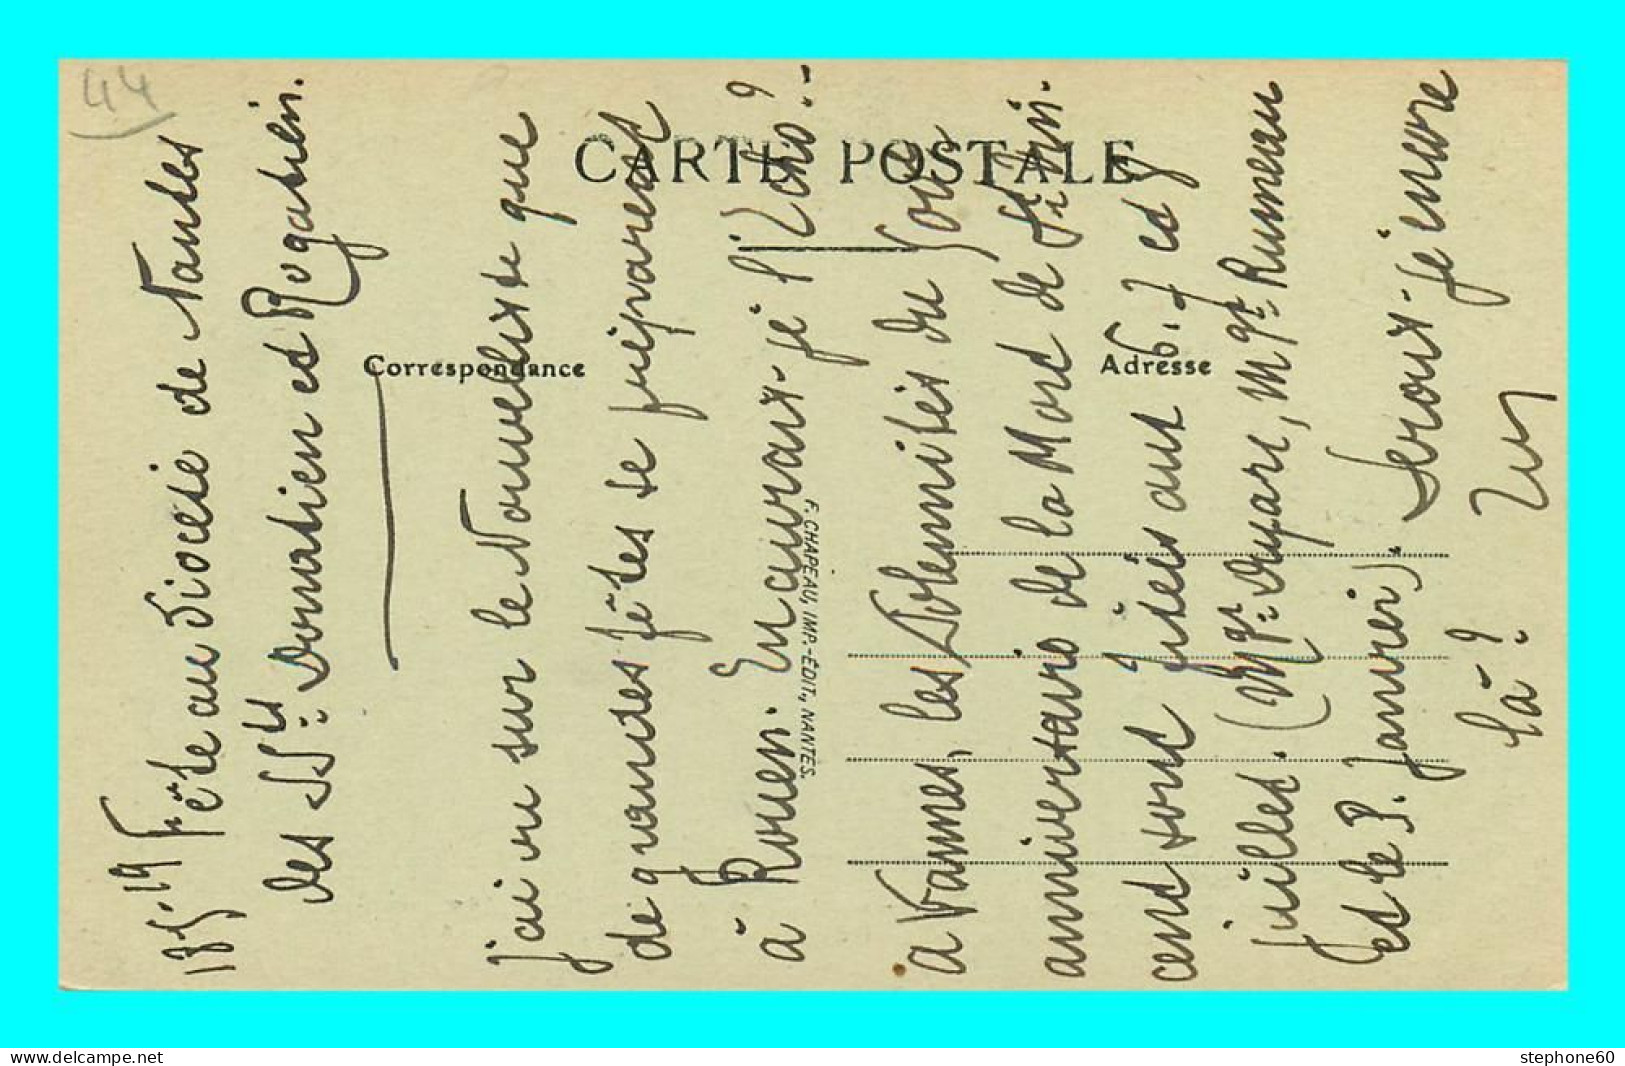 44
CARTE POSTALE
Correspondance
Adresse
F. CHAPEAU, IMP.-ÉDIT., NANTES.
Fête au Diocèse de Nantes
des SSts Donatien et Rogatien.
J'ai vu sur le Nouvelliste que
de grandes fêtes se préparent
à Rouen. En aurai-je l'écho?
a Vannes, les Solennités du
anniversaire de la Mort de
cent sont fixées aux 6. 7 et 8
juillet. (Mgr Duparc, Mgr Rumeau
et le P. Janvier). Serai-je encore
là?
www.delcampe.net
stephone60